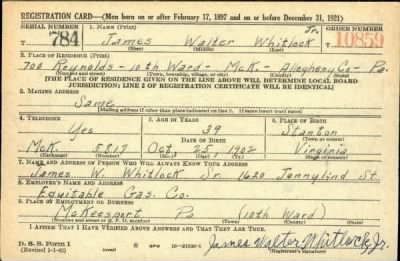 REGISTRATION CARD—(Men born on or after February 17, 1897 and on or before December 31, 1921)
SERIAL NUMBER 1. NAME (Print) ORDER NUMBER
784 James Walter Whitlock Jr. 10859
2. PLACE OF RESIDENCE (Print)
700 Reynolds - 10th Ward - McK. - Allegheny Co - Pa.
(Number and street) (Town, township, village, or city) (County) (State)
[THE PLACE OF RESIDENCE GIVEN ON THE LINE ABOVE WILL DETERMINE LOCAL BOARD
JURISDICTION; LINE 2 OF REGISTRATION CERTIFICATE WILL BE IDENTICAL]
3. MAILING ADDRESS
Same
[Mailing address if other than place indicated on line 2. If same insert word same]
4. TELEPHONE 5. AGE IN YEARS 6. PLACE OF BIRTH
Yes 39 Stanton
DATE OF BIRTH (Town or county)
McK. 5817 Oct. 25, 1902 Virginia
(Exchange) (Number) (Mo.) (Day) (Yr.) (State or country)
7. NAME AND ADDRESS OF PERSON WHO WILL ALWAYS KNOW YOUR ADDRESS
James W. Whitlock Sr 1620 Jennylind St.
8. EMPLOYER'S NAME AND ADDRESS
Equitable Gas. Co.
9. PLACE OF EMPLOYMENT OR BUSINESS
McKeesport Pa (10th Ward)
(Number and street or R. F. D. number) (Town) (County) (State)
I AFFIRM THAT I HAVE VERIFIED ABOVE ANSWERS AND THAT THEY ARE TRUE.
D. S. S. Form 1
(Revised 1-1-42) GPO James Walter Whitlock, Jr.
(Registrant's signature)